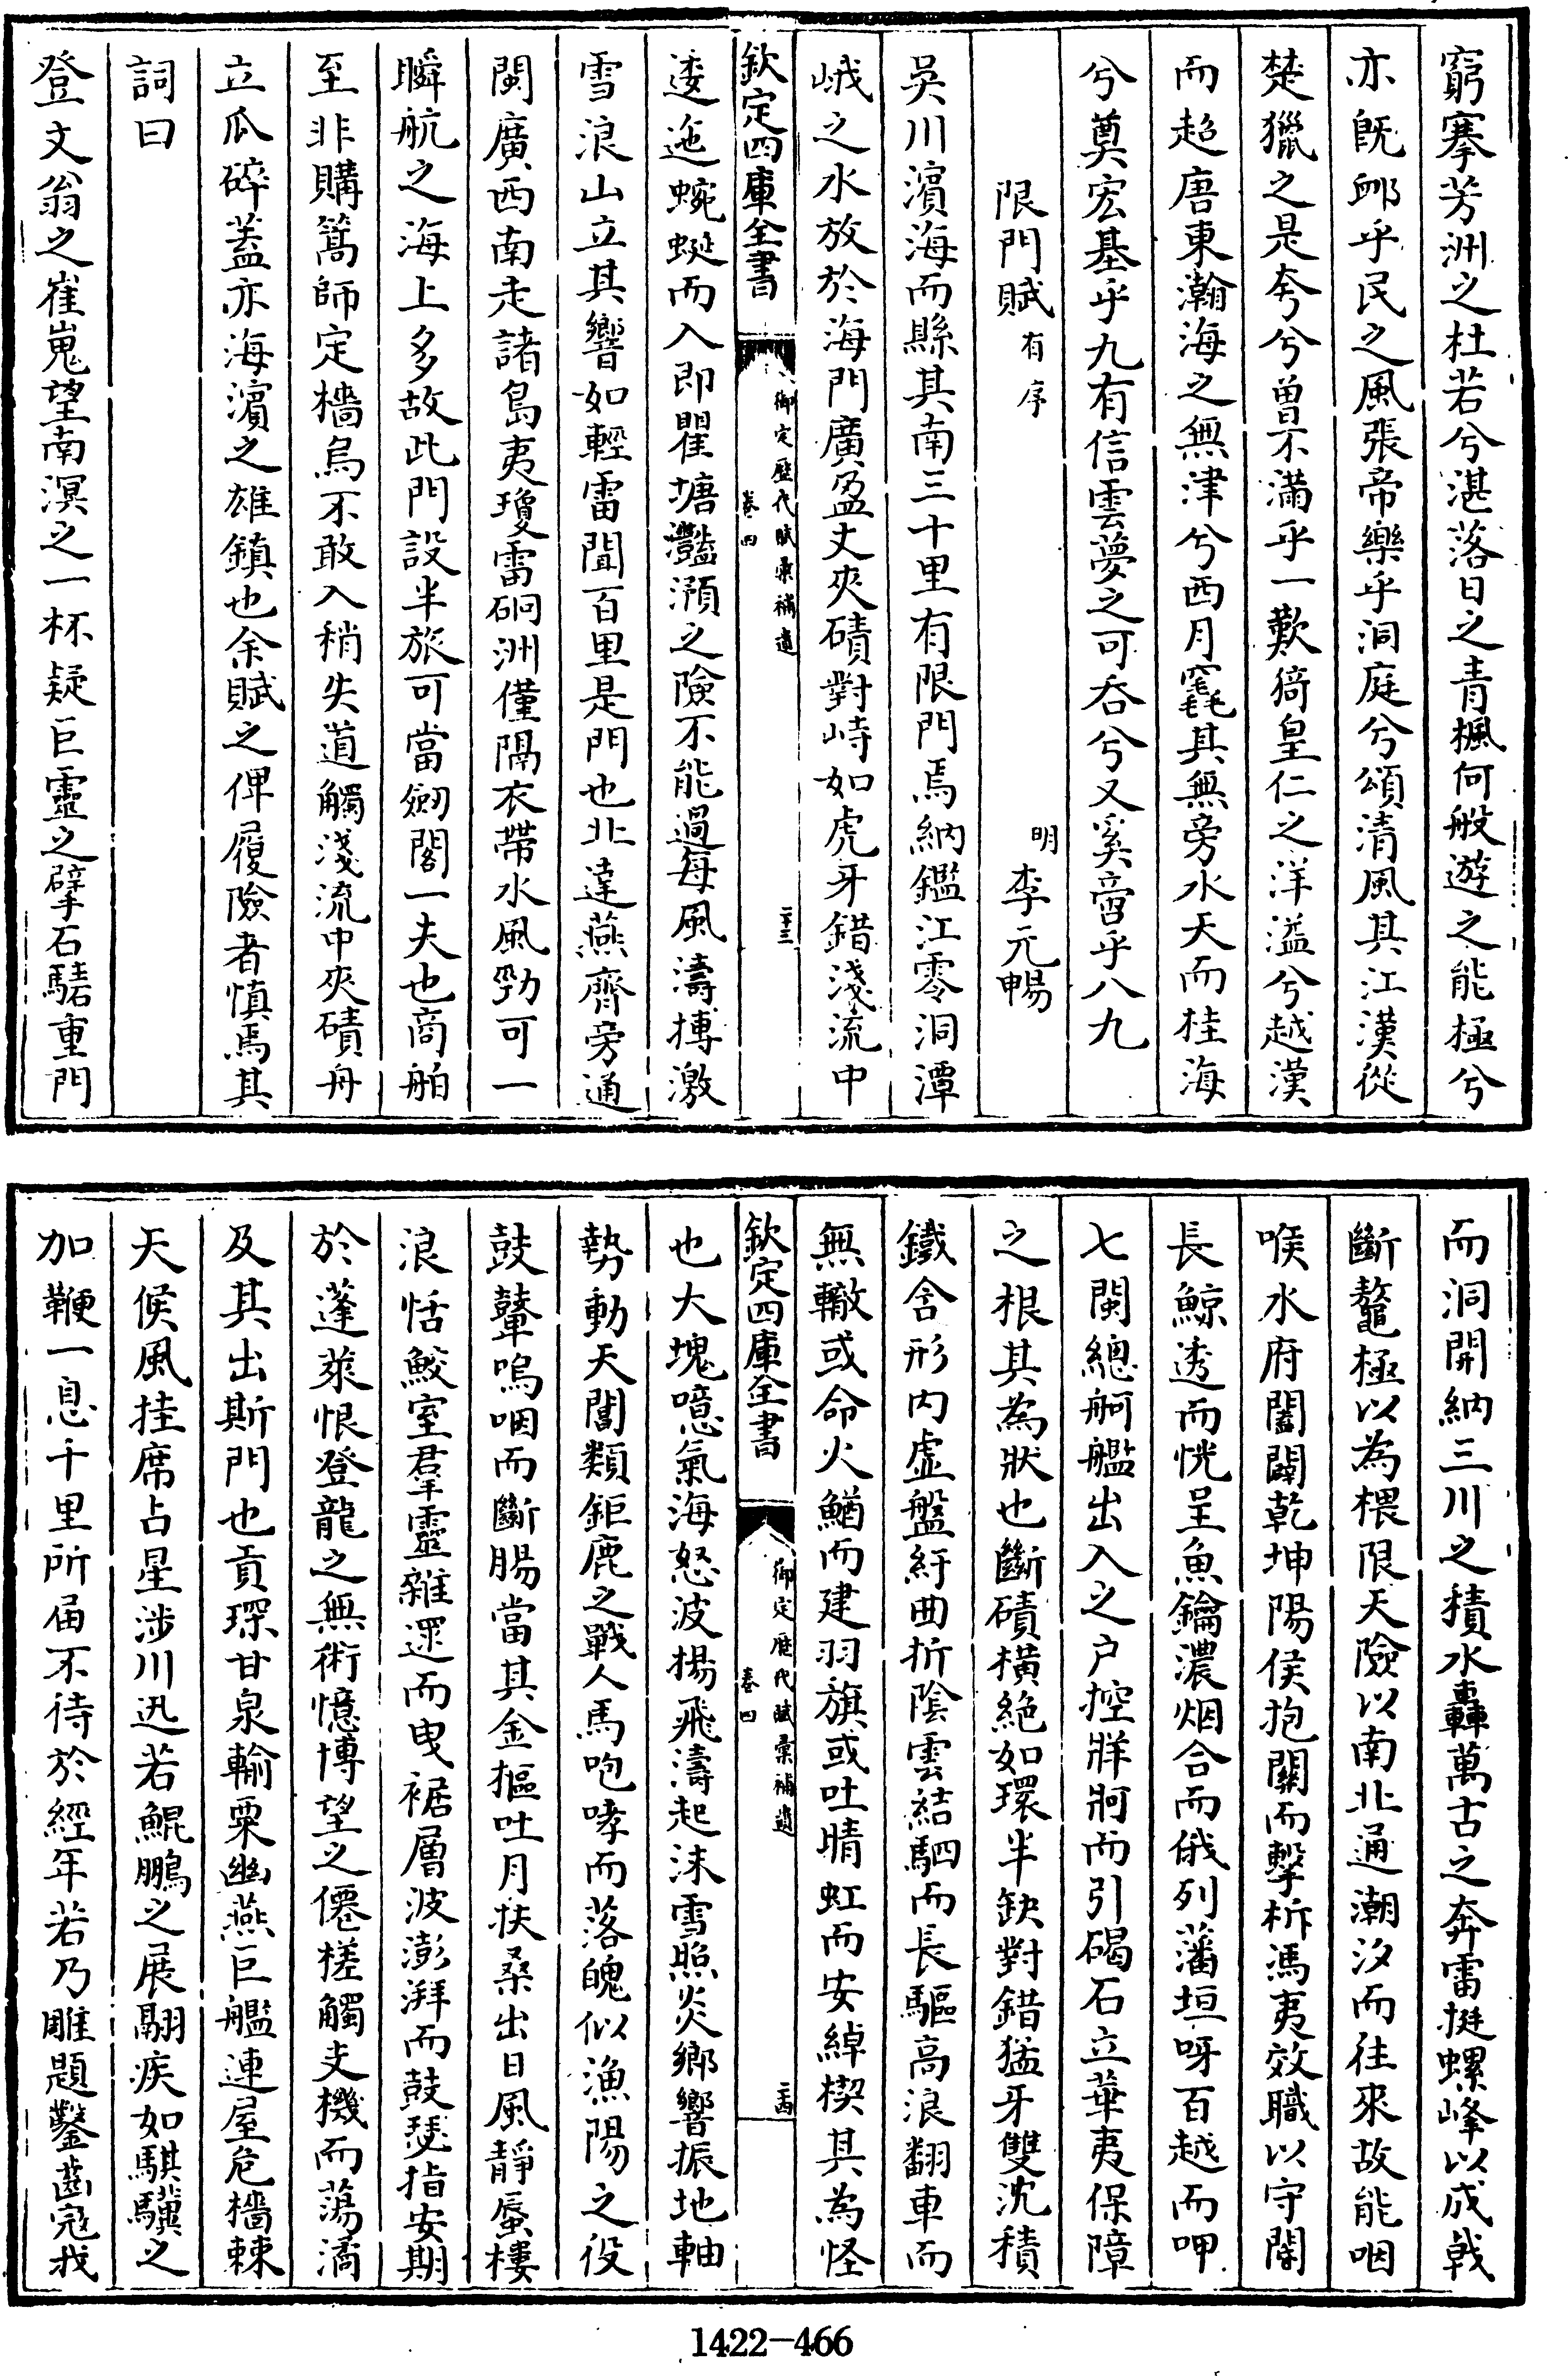 窮搴芳洲之杜若兮湛落日之青楓何般遊之能極兮
亦旣郎乎民之風張帝樂乎洞庭兮頌清風其江漢從
楚獵之是夸兮曾不滿乎一歎猗皇仁之洋溢兮越漢
而超唐東瀚海之無津兮西月窟其無旁水天而桂海
兮奠宏基乎九有信雲夢之可吞兮又奚啻乎八九
限門賦有序
明李元暢
吳川濱海而縣其南三十里有限門焉納鑑江零洞潭
峨之水放於海門廣盈丈夾磧對峙如虎牙錯淺流中
欽定四庫全書
御定歷代賦彙補遺
卷四
二十三
逶迤蜿蜒而入即瞿塘灩澦之險不能過每風濤摶激
雪浪山立其響如輕雷聞百里是門也北達燕齊旁通
閩廣西南走諸島夷瓊雷硐洲僅隔衣帶水風勁可一
瞬航之海上多故此門設半旅可當劒閣一夫也商舶
至非購篙師定檣烏不敢入稍失道觸淺流中夾磧舟
立瓜碎蓋亦海濱之雄鎮也余賦之俾履險者慎焉其
詞曰
登文翁之崔嵬望南溟之一杯疑巨靈之擘石䮷重門
而洞開納三川之積水轟萬古之奔雷挺螺峰以成戟
斷鼇極以為椳限天險以南北通潮汐而往來故能咽
喉水府闔闢乾坤陽侯抱關而擊柝馮夷效職以守閽
長鯨透而恍呈魚鑰濃烟合而俄列藩垣呀百越而呷
七閩總舸艦出入之户控牂牁而引碣石立華夷保障
之根其為狀也斷磧橫絶如環半缺對錯猛牙雙沈積
鐵含形内虛盤紆曲折陰雲結駟而長驅高浪翻車而
無轍或命火鰌而建羽旗或吐晴虹而安綽楔其為怪
欽定四庫全書
御定歷代賦彙補遺
卷四
二十四
也大塊噫氣海怒波揚飛濤起沫雪照炎鄉響振地軸
勢動天閶類鉅鹿之戰人馬咆哮而落魄似漁陽之役
鼓鼙嗚咽而斷腸當其金摳吐月扶桑出日風靜蜃樓
浪恬鮫室羣靈雜遝而曳裾層波澎湃而鼓瑟指安期
於蓬萊恨登龍之無術憶博望之僊槎觸支機而蕩潏
及其出斯門也貢琛甘泉輸粟幽燕巨艦連屋危檣棘
天候風挂席占星涉川迅若鯤鵬之展翮疾如騏驥之
加鞭一息千里所届不待於經年若乃雕題鑿齒寇我
1422-466